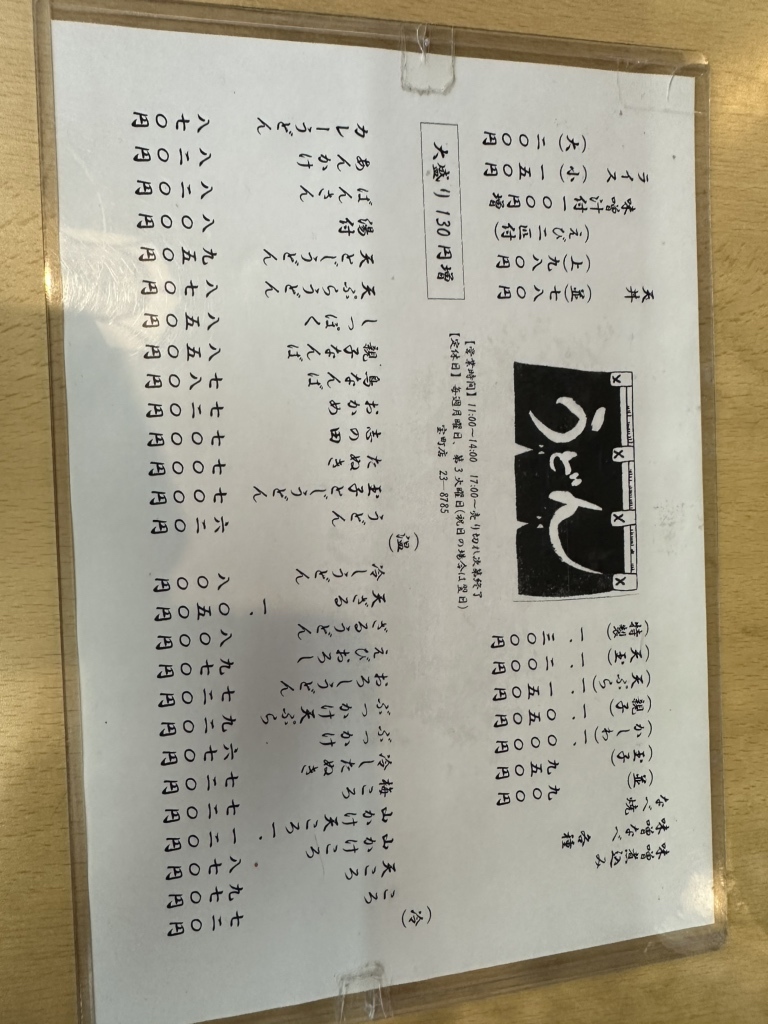 味噌煮込み
味噌なべ 各種
なべ焼
(並) 九〇〇円
(玉子) 九五〇円
(かしわ) 一、〇〇〇円
(親子) 一、〇五〇円
(天ぷら) 一、一五〇円
(天玉) 一、二〇〇円
(特製) 一、三〇〇円
うどん
【営業時間】 11:00〜14:00 17:00〜売り切れ次第終了
【定休日】 毎週月曜日、第3火曜日(祝日の場合は翌日)
宝町店 23-8785
天丼
(並) 七八〇円
(上) 九八〇円
(えび二匹付)
味噌汁付 一〇〇円増
ライス
(小) 一五〇円
(大) 二〇〇円
大盛り 130円増
(冷)
ころ 七二〇円
天ころ 九七〇円
山かけころ 八七〇円
山かけ天ころ 一、一二〇円
梅ころ 七七〇円
冷したぬき 七二〇円
ぶっかけ 六七〇円
ぶっかけ天ぷら 九二〇円
おろしうどん 七二〇円
えびおろし 九七〇円
ざるうどん 八〇〇円
天ざる 一、〇五〇円
冷しうどん 八〇〇円
(温)
うどん 六二〇円
玉子とじうどん 七〇〇円
たぬき 七〇〇円
志の田 七〇〇円
おかめ 七二〇円
鳥なんば 七八〇円
親子なんば 八五〇円
しっぽく 八五〇円
天ぷらうどん 八七〇円
天とじうどん 九五〇円
湯付 八〇〇円
ばんさん 八二〇円
あんかけ 八二〇円
カレーうどん 八七〇円